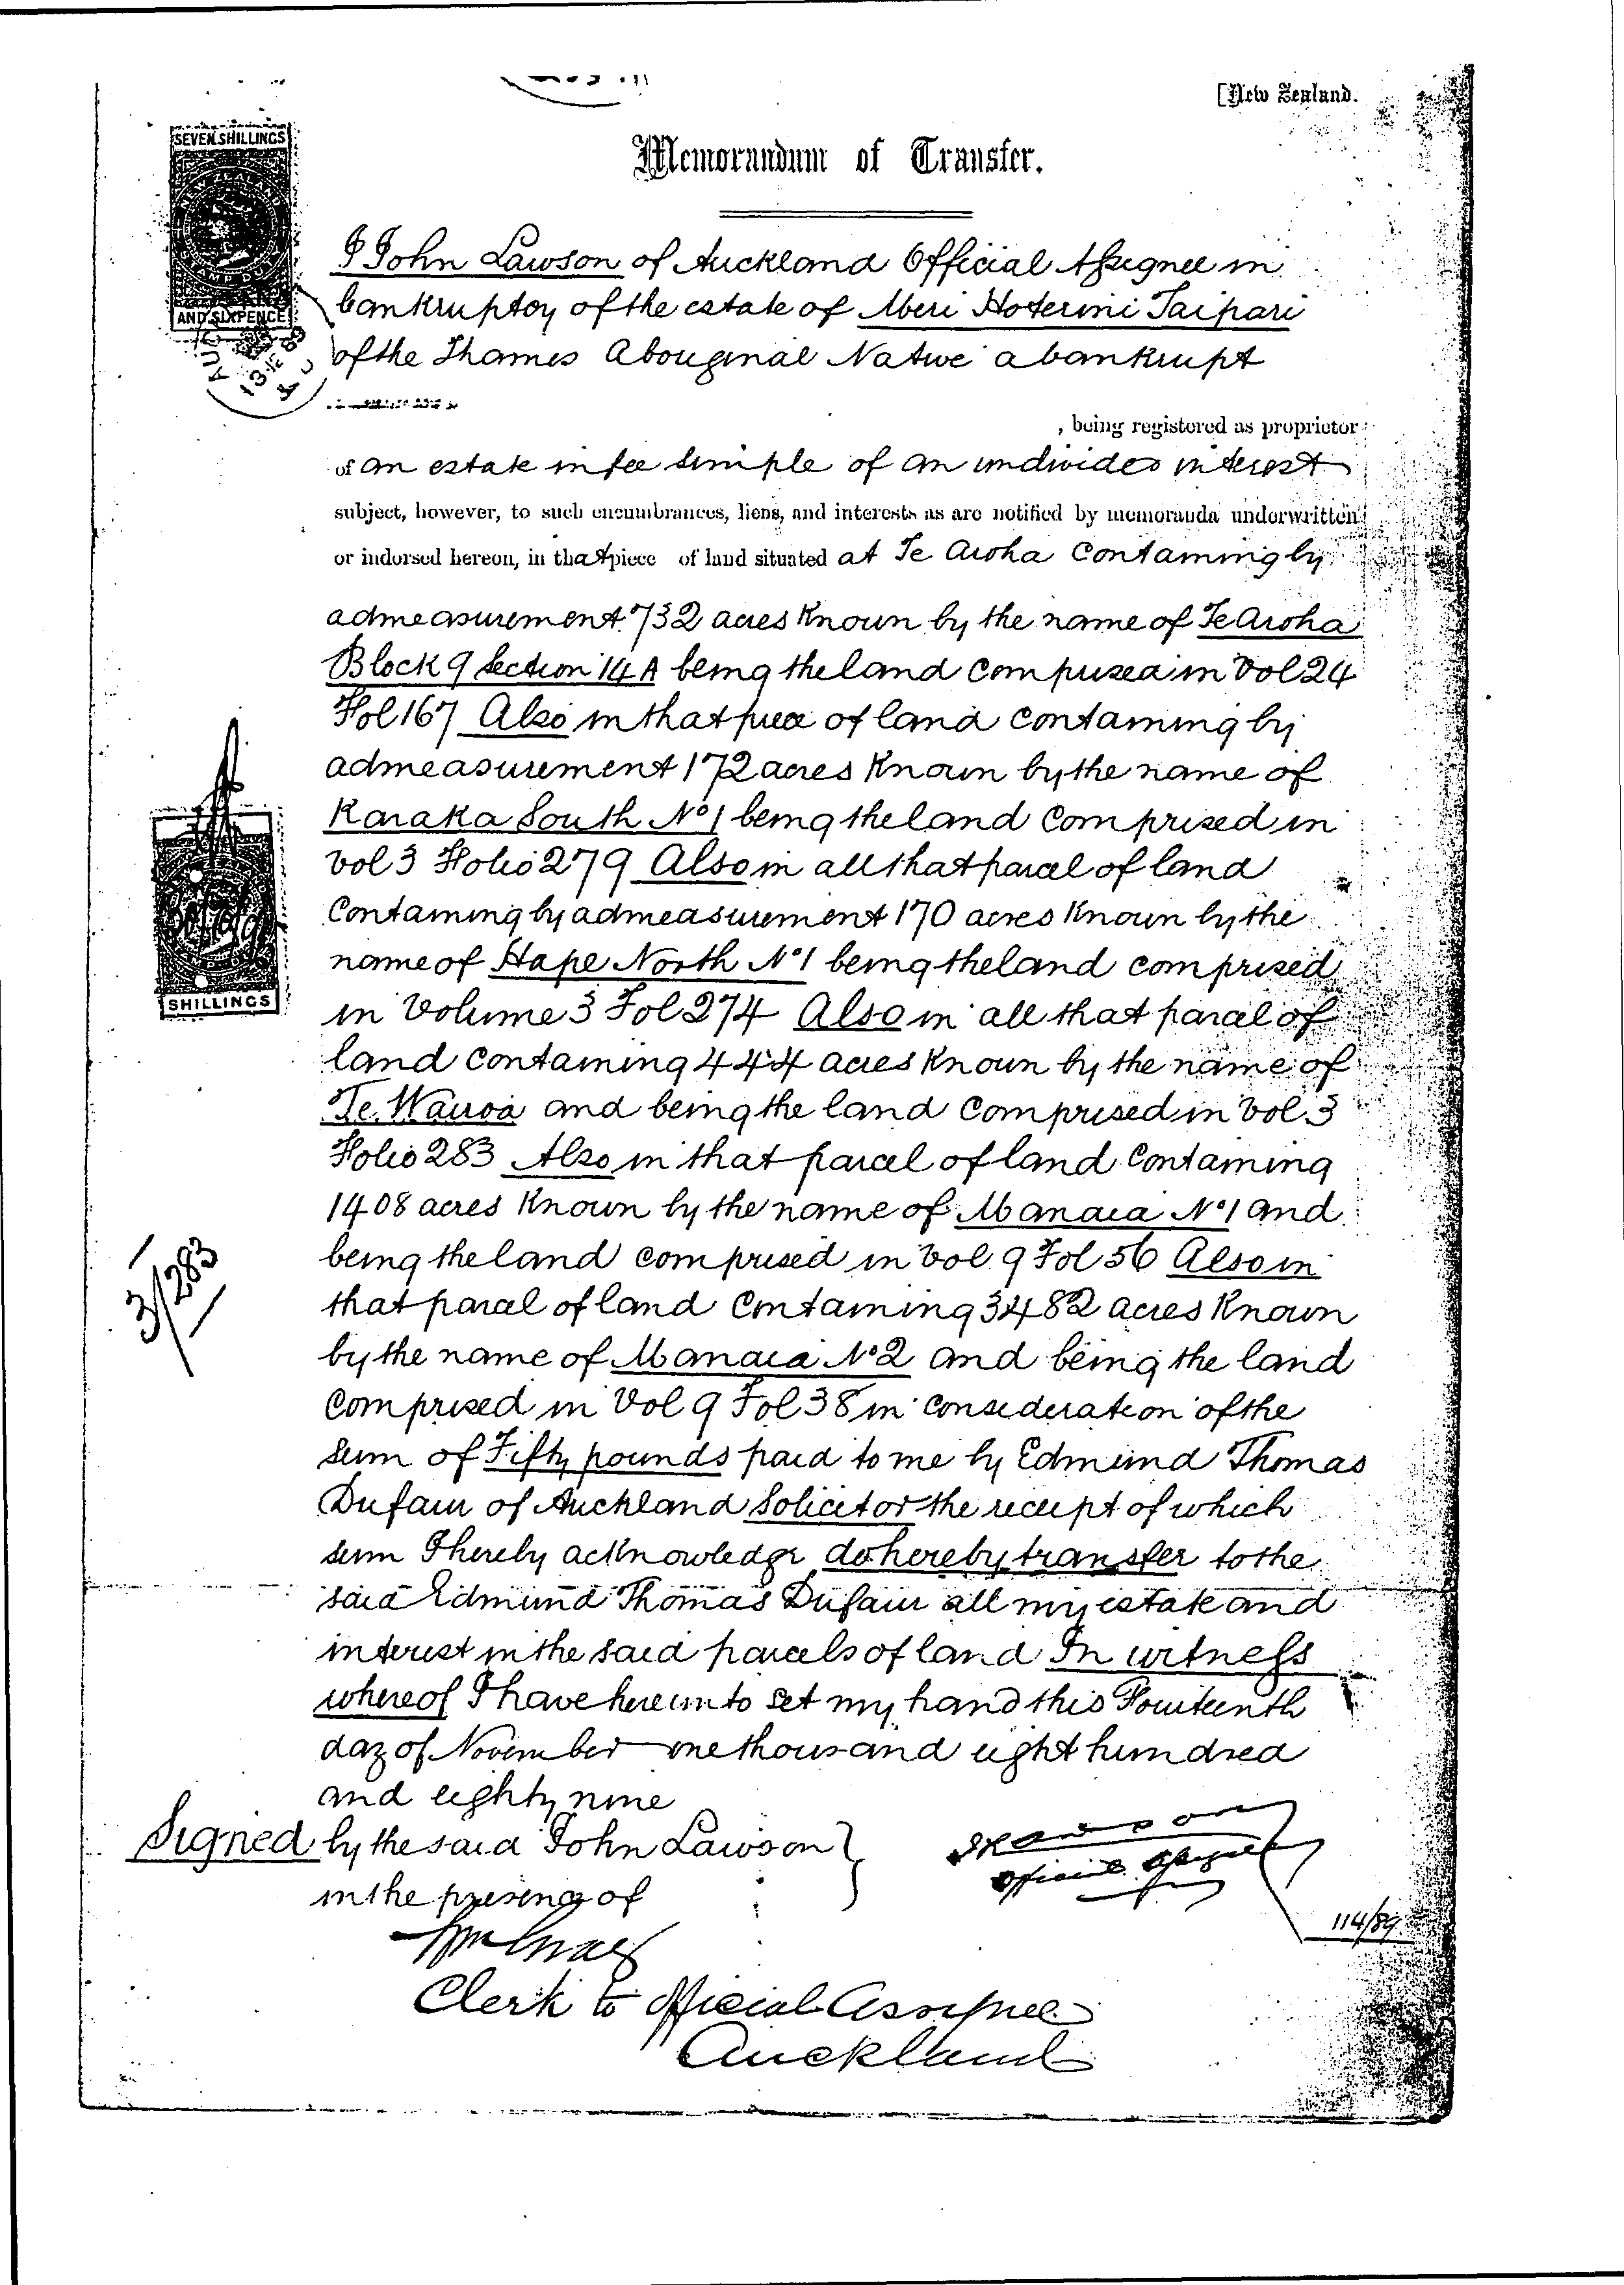 [New Zealand.
Memorandum of Transfer.
SEVEN SHILLINGS
AND SIXPENCE
I John Lawson of Auckland Official Assignee in
bankruptcy of the estate of Meri Hoterini Taipari
of the Thames Aboriginal Native a bankrupt
, being registered as proprietor
of an estate in fee simple of an undivided interest
subject, however, to such encumbrances, liens, and interests as are notified by memoranda underwritten
or indorsed hereon, in that piece of land situated at Te Aroha Containing by
admeasurement 732 acres Known by the name of Te Aroha
Block 9 Section 14A being the land comprised in Vol 24
Fol 167 Also in that piece of land containing by
admeasurement 172 acres Known by the name of
Karaka South No 1 being the land Comprised in
Vol 3 Folio 279 Also in all that parcel of land
Containing by admeasurement 170 acres Known by the
name of Hape North No 1 being the land comprised
in Volume 3 Fol 274 Also in all that parcel of
SHILLINGS
land containing 444 acres Known by the name of
Te Wairoa and being the land Comprised in Vol 3
Folio 283 Also in that parcel of land Containing
1408 acres Known by the name of Manaia No 1 and
being the land comprised in Vol 9 Fol 56 Also in
3/283
that parcel of land Containing 3482 acres Known
by the name of Manaia No 2 and being the land
Comprised in Vol 9 Fol 38 in consideration of the
sum of Fifty pounds paid to me by Edmund Thomas
Dufaur of Auckland Solicitor the receipt of which
sum I hereby acknowledge do hereby transfer to the
said Edmund Thomas Dufaur all my estate and
interest in the said parcels of land In witness
whereof I have hereunto set my hand this Fourteenth
day of November one thousand eight hundred
and eighty nine
Signed by the said John Lawson
in the presence of
J Lawson
Official Assignee
114/89
Clerk to Official Assignee
Auckland